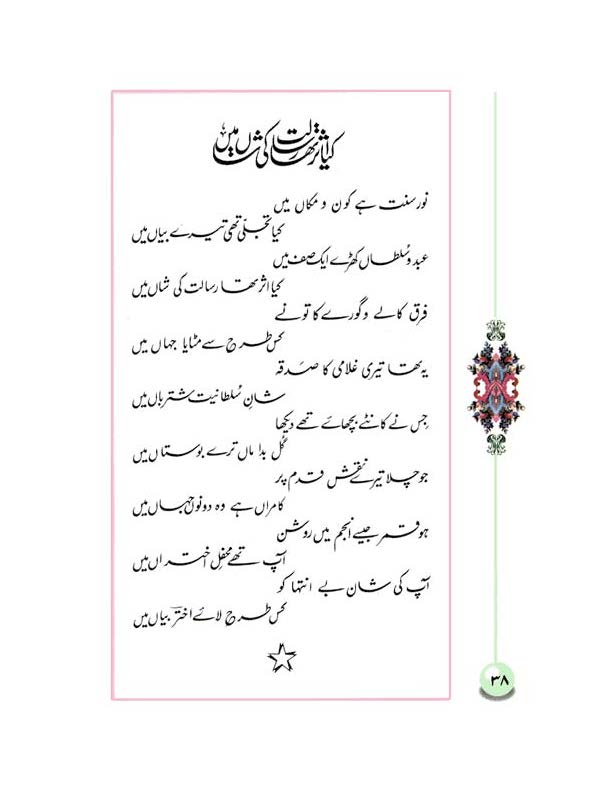 کیا اثر تھا رسالت کی شاں میں
نور سنت ہے کون و مکاں میں
کیا تجلّی تھی تیرے بیاں میں
عبد و سُلطاں کھڑے ایک صف میں
کیا اثر تھا رسالت کی شاں میں
فرق کالے و گورے کا تو نے
کس طرح سے مٹایا جہاں میں
یہ تھا تیری غلامی کا صَدقہ
شانِ سُلطانیت شترباں میں
جس نے کانٹے بچھائے تھے دیکھا
گُل بداماں ترے بوستاں میں
جو چلا تیرے نقشِ قدم پر
کامراں ہے وہ دونوں جہاں میں
ہو قمر جیسے انجم میں روشن
آپ تھے محفلِ اختراں میں
آپ کی شان بے انتہا کو
کس طرح لائے اختؔر بیاں میں
۳۸